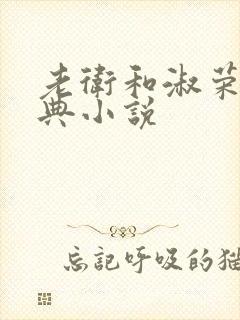 老衛和淑荣
典小说
忘記呼吸的猫